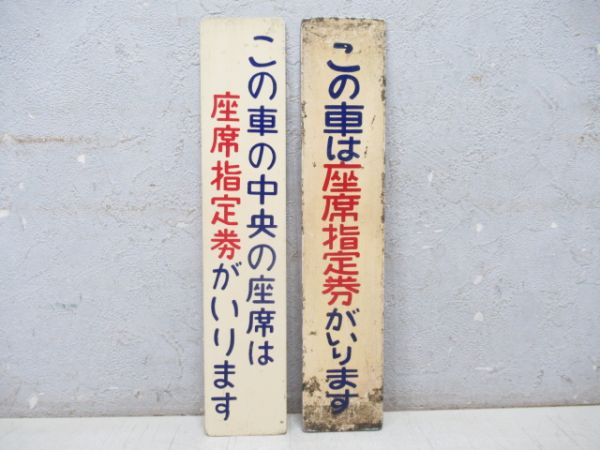 この車の中央の座席は
座席指定券がいります
この車は座席指定券がいります